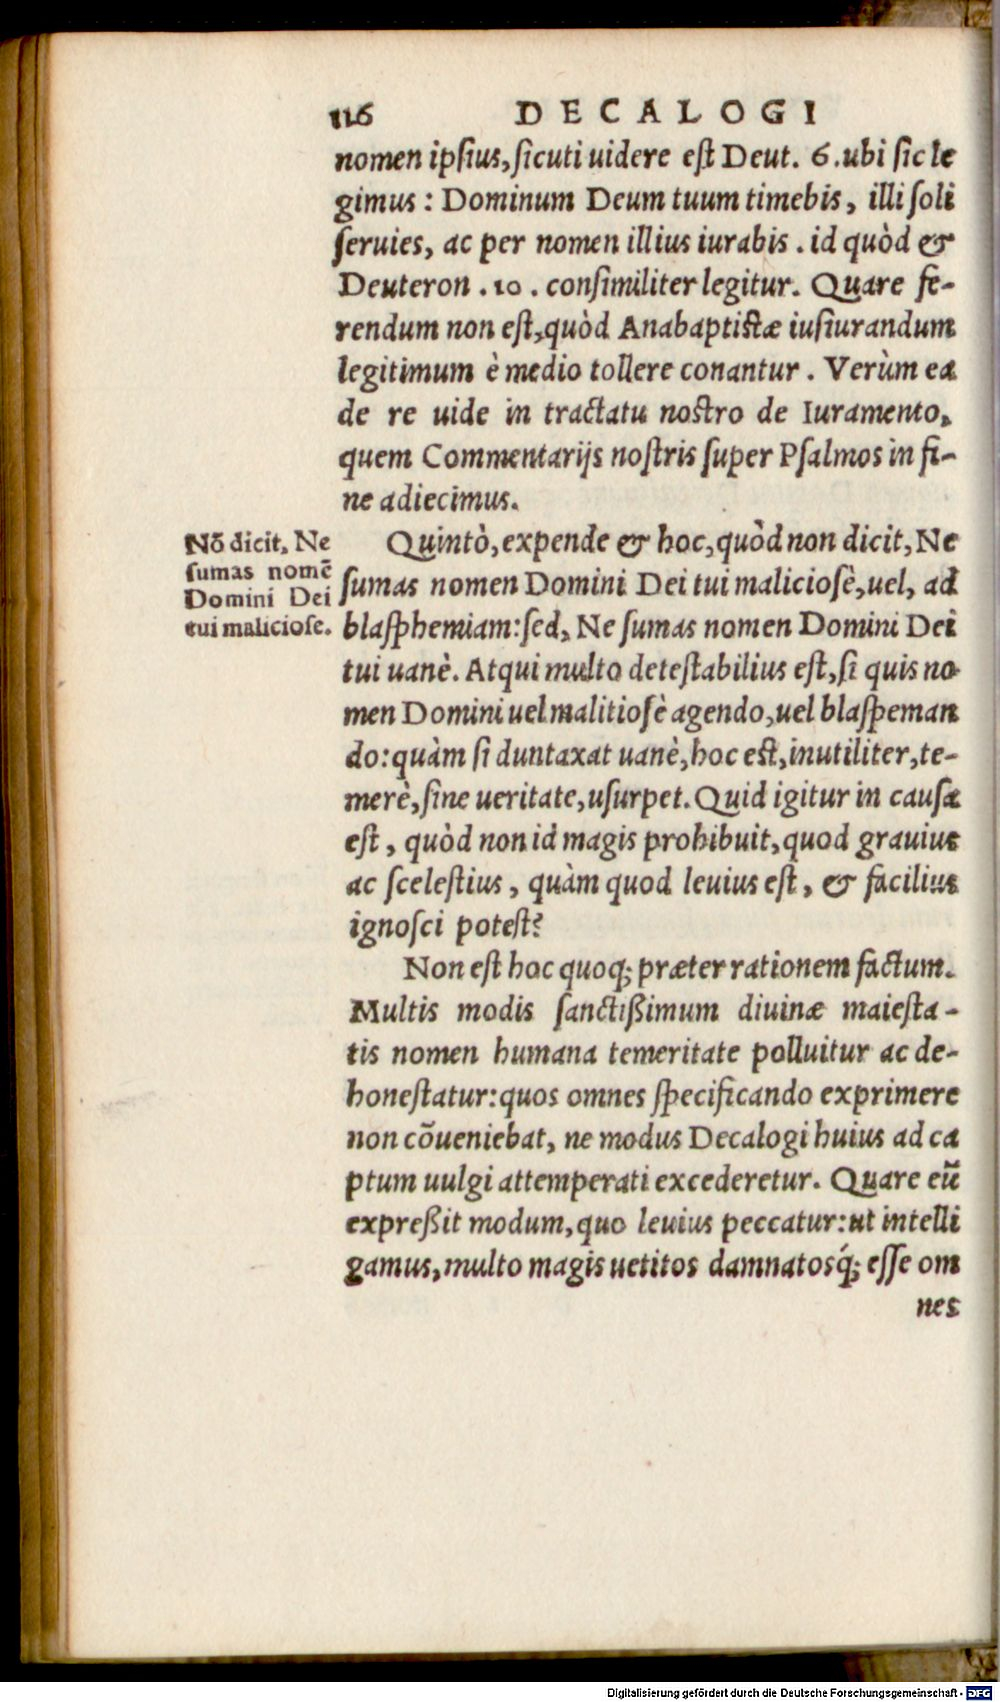 116 DECALOGI
nomen ipsius, sicuti uidere est Deut. 6. ubi sic le
gimus: Dominum Deum tuum timebis, illi soli
seruies, ac per nomen illius iurabis. id quòd &
Deuteron. 10. consimiliter legitur. Quare fe-
rendum non est, quòd Anabaptistæ iusiurandum
legitimum è medio tollere conantur. Verùm ea
de re uide in tractatu nostro de Iuramento,
quem Commentarijs nostris super Psalmos in fi-
ne adiecimus.
Nõ dicit, Ne
sumas nomẽ
Domini Dei
tui maliciose.
Quintò, expende & hoc, quòd non dicit, Ne
sumas nomen Domini Dei tui maliciosè, uel, ad
blasphemiam: sed, Ne sumas nomen Domini Dei
tui uanè. Atqui multo detestabilius est, si quis no
men Domini uel malitiosè agendo, uel blaspeman
do: quàm si duntaxat uanè, hoc est, inutiliter, te-
merè, sine ueritate, usurpet. Quid igitur in causa
est, quòd non id magis prohibuit, quod grauius
ac scelestius, quàm quod leuius est, & facilius
ignosci potest?
Non est hoc quoq; præter rationem factum.
Multis modis sanctißimum diuinæ maiesta-
tis nomen humana temeritate polluitur ac de-
honestatur: quos omnes specificando exprimere
non cõueniebat, ne modus Decalogi huius ad ca
ptum uulgi attemperati excederetur. Quare eũ
expreßit modum, quo leuius peccatur: ut intelli
gamus, multo magis uetitos damnatosq́; esse om
nes
Digitalisierung gefördert durch die Deutsche Forschungsgemeinschaft - DFG